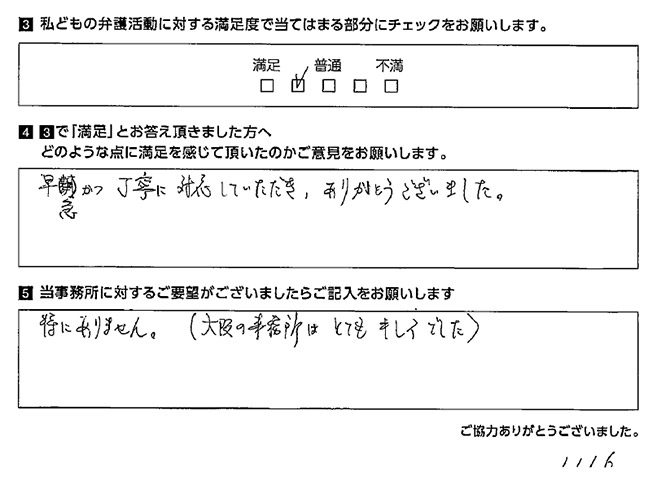 3 私どもの弁護活動に対する満足度で当てはまる部分にチェックをお願いします。
満足 普通 不満
4 3で「満足」とお答え頂きました方へ
どのような点に満足を感じて頂いたのかご意見をお願いします。
早急かつ丁寧に対応していただき、ありがとうございました。
5 当事務所に対するご要望がございましたらご記入をお願いします
特にありません。(大阪の事務所はとてもキレイでした)
ご協力ありがとうございました。
1116